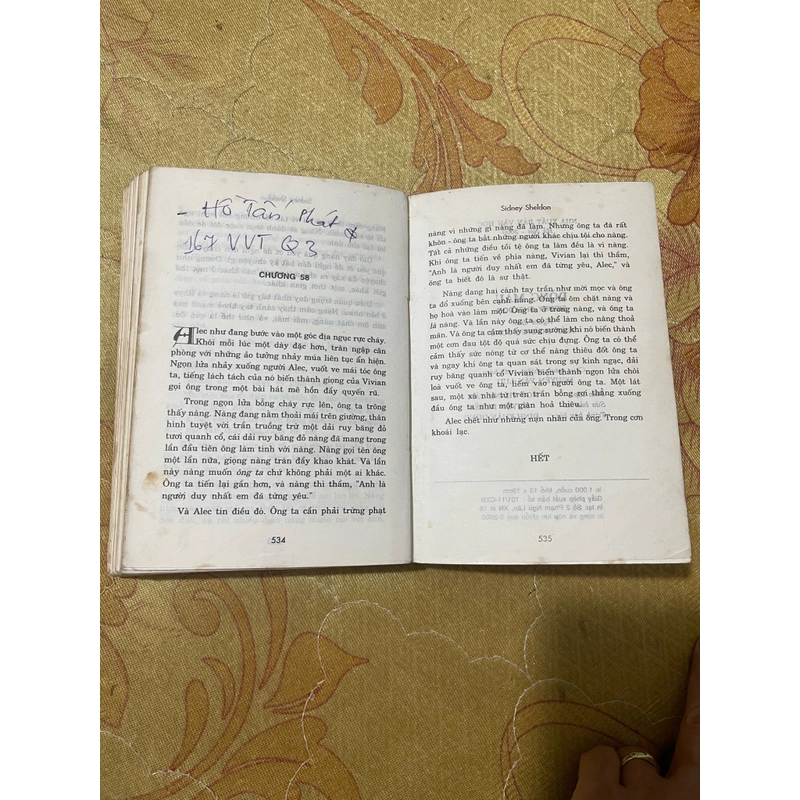 - Hồ Tấn Phát
167 VVT Q3
CHƯƠNG 58
Alec như đang bước vào một góc địa ngục rực cháy.
Khói mỗi lúc một dày đặc hơn, tràn ngập căn
phòng với những ảo tưởng nhảy múa liên tục ẩn hiện.
Ngọn lửa nhảy xuống người Alec, vuốt ve mái tóc ông
ta, tiếng lách tách của nó biến thành giọng của Vivian
gọi ông trong một bài hát mê hồn đầy quyến rũ.
Trong ngọn lửa bỗng cháy rực lên, ông ta trông
thấy nàng. Nàng đang nằm thoải mái trên giường, thân
hình tuyệt vời trần truồng trừ một dải ruy băng đỏ
tươi quanh cổ, cái dải ruy băng đỏ nàng đã mang trong
lần đầu tiên ông làm tình với nàng. Nàng gọi tên ông
một lần nữa, giọng nàng tràn đầy khao khát. Và lần
này nàng muốn ông ta chứ không phải một ai khác.
Ông ta tiến lại gần hơn, và nàng thì thầm, "Anh là
người duy nhất em đã từng yêu."
Và Alec tin điều đó. Ông ta cần phải trừng phạt
534
Sidney Sheldon
nàng vì những gì nàng đã làm. Nhưng ông ta đã rất
khôn - ông ta bắt những người khác chịu tội cho nàng.
Tất cả những điều tồi tệ ông ta làm đều là vì nàng.
Khi ông ta tiến về phía nàng, Vivian lại thì thầm,
"Anh là người duy nhất em đã từng yêu, Alec," và
ông ta biết đó là sự thật.
Nàng dang hai cánh tay trần như mời mọc và ông
ta đổ xuống bên cạnh nàng. Ông ta ôm chặt nàng và
họ hoà vào làm một. Ông ta ở trong nàng, và ông ta
là nàng. Và lần này ông ta có thể làm cho nàng thoả
mãn. Và ông ta cảm thấy sung sướng khi nó biến thành
một cơn đau tột độ quá sức chịu đựng. Ông ta có thể
cảm thấy sức nóng từ cơ thể nàng thiêu đốt ông ta
và ngay khi ông ta quan sát trong sự kinh ngạc, dải
ruy băng quanh cổ Vivian biến thành ngọn lửa chói
loà vuốt ve ông ta, liếm vào người ông ta. Một lát
sau, một xà nhà từ trên trần bỗng rơi thẳng xuống
đầu ông ta như một giàn hoả thiêu.
Alec chết như những nạn nhân của ông. Trong cơn
khoái lạc.
HẾT
535